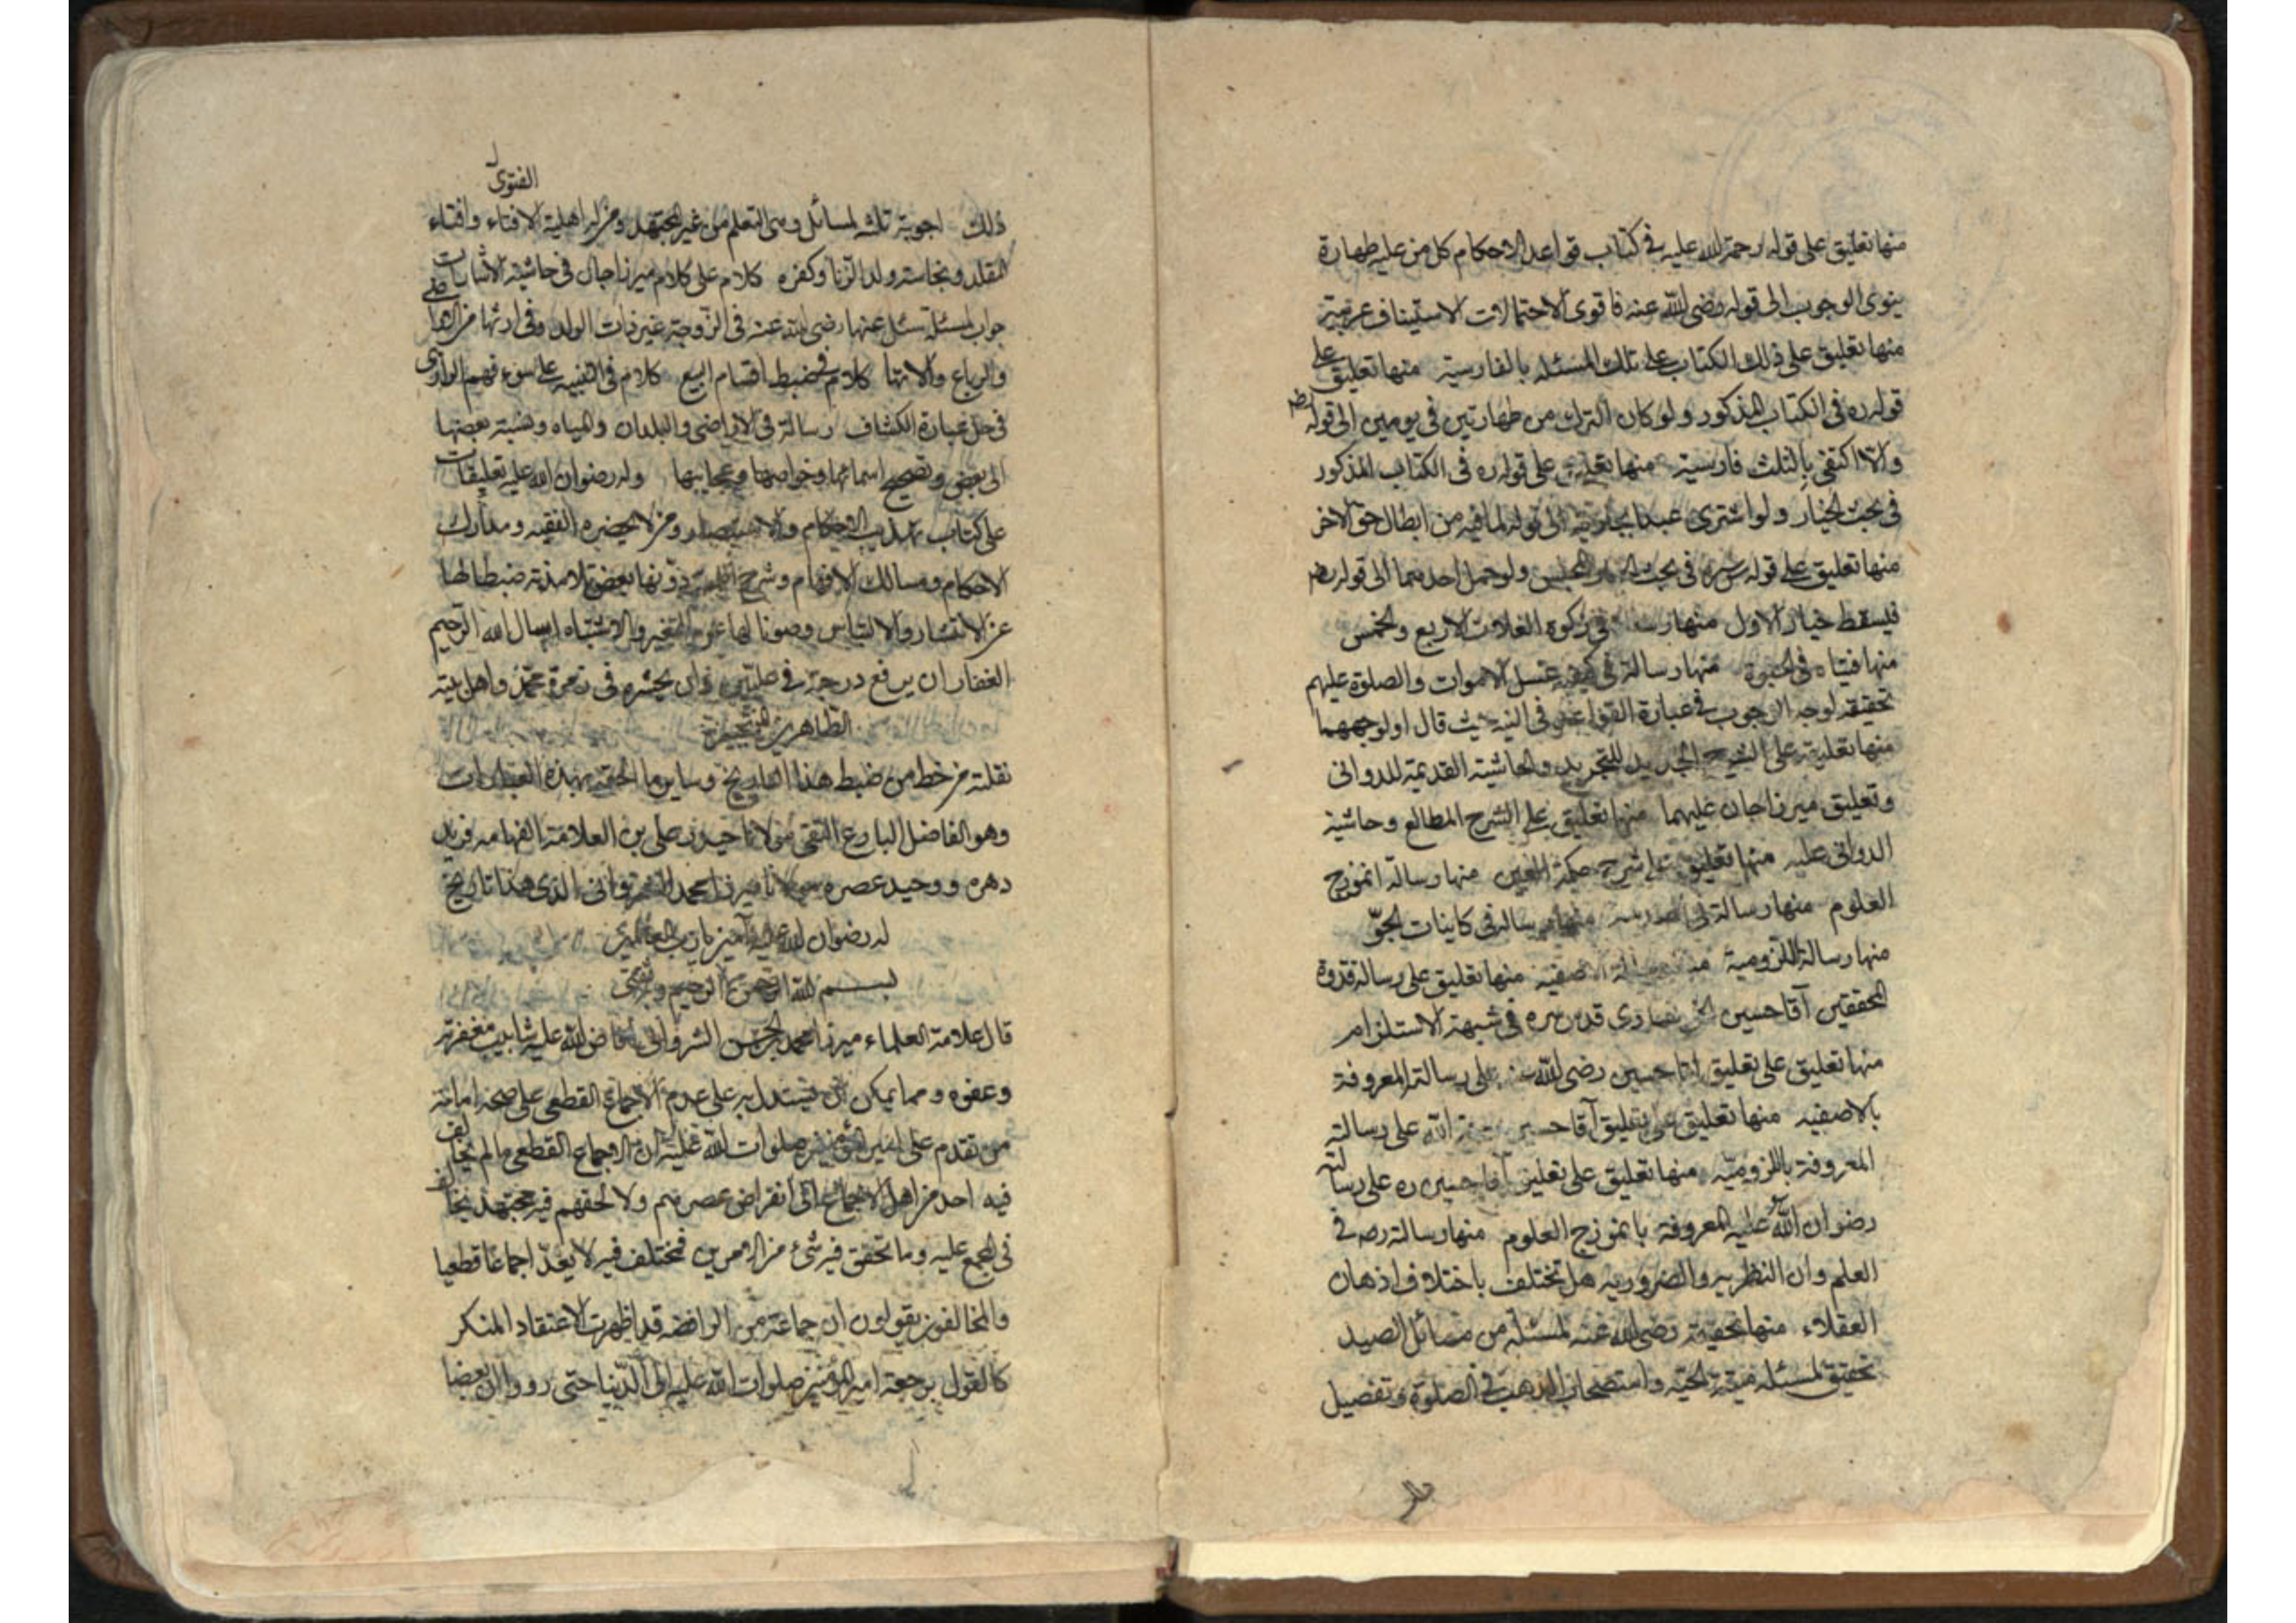 منها تعليق على قوله رحمة الله عليه في كتاب قواعد الاحكام كل من عليه طهارة
ينوى الوجوب الى قوله رضى الله عنه فاقوى الاحتمالات الاستيناف عربية
منها تعليق على ذلك الكتاب على تلك المسئله بالفارسية منها تعليق على
قوله ره فى الكتاب المذكور ولو كان الترك من طهارتين في يومين الى قوله رضه
والا اكتفى بالثلث فارسية منها تعليق على قوله ره فى الكتاب المذكور
في بحث الخيار ولو اشترى عبدا بجارية الى قوله لما فيه من ابطال حق الاخر
منها تعليق على قوله سره فى بحث المجلس ولو حمل احدهما الى قوله رضه
فيسقط خيار الاول منها رسالة في زكوة الغلات الاربع والخمس
منها فتياه فى الحبوة منها رسالة فى كيفية غسل الاموات والصلوة عليهم
تحقيقه لوجه الوجوب في عبارة القواعد فى النية حيث قال او لوجههما
منها تعليقة على الشرح الجديد للتجريد والحاشية القديمة للدوانى
وتعليق ميرزا جان عليهما منها تعليق على الشرح المطالع وحاشية
الدوانى عليه منها تعليق على شرح حكمة العين منها رسالة انموزج
العلوم منها رسالة منها رساله فى كاينات الجوّ
منها رسالة اللزومية الاصفية منها تعليق على رسالة قدوة
المحققين آقا حسين الخونسارى قدس سره فى شبهة الاستلزام
منها تعليق على تعليق اقا حسين رضى الله عنه على رسالة المعروفة
بالاصفيه منها تعليق على تعليق آقا حسين الله على رسالته
المعروفة باللزوميّه منها تعليق على تعليق آقا حسين ره على رسالته
رضوان الله عليه المعروفة بانموزج العلوم منها رسالة رحه في
العلم وان النظريه والضروريه هل تختلف باختلاف اذهان
العقلاء منها تحقيقة رضى الله عنه لمسئلة من مسائل الصيد
تحقيق لمسئله ميتة الحيّة واستصحاب الذهب في الصلوة وتفصيل
الفتوى
ذلك اجوبة ثلثه لمسائل وهى التعلم من غير المجتهد ومن له اهلية الافتاء وافتاء
المقلد ونجاسة ولد الزنا وكفره كلام على كلام ميرزا جان فى حاشية الاثبات
جواب لمسئلة سئل عنها رضى الله عنه فى الزوجة غير ذات الولد وفى ارثها من
والرباع والاتها كلام فى ضبط اقسام البيع كلام فى التنبيه على سوء فهم الرازى
فى حل عبارة الكشاف رسالة فى الاراضى والبلدان والمياه ونسبة بعضها
الى بعض وتصحيح اسمائها وخواصها وعجايبها وله رضوان الله عليه تعليقات
على كتاب تهذيب الاحكام والاستبصار ومن لا يحضره الفقيه ومدارك
الاحكام ومسالك الافهام وشرح دوّنها بعض تلامذته ضبطا لها
عن الانتشار والالتباس وصونا لها عن التغير والاشتباه اسال الله الرحيم
الغفار ان يرفع درجته في عليّين وان يحشره فى زمرة محمّد واهل بيته
الطاهرين
نقلته من خط من ضبط هذا التاريخ وساير ما الحقه بهذه العبارات
وهو الفاضل البارع التقى مولانا حيدر على بن العلامة الفهامه فريد
دهره ووحيد عصره مولانا ميرزا محمد الشروانى الذى هذا تاريخ
له رضوان الله عليه آمين يا رب العالمين
بسم الله الرحمن الرحيم وبه ثقتى
قال علامة العلماء ميرزا محمد بن الحسن الشروانى افاض الله عليه شابيب مغفرته
وعفوه ومما يمكن ان يستدل به على عدم الاجماع القطعى على صحة امامة
من تقدم على امير المؤمنين صلوات الله عليه ان الاجماع القطعى ما لم يخالف
فيه احد من اهل الاجماع الى انقراض عصرهم ولا لحقهم فيه مجتهد يخالف
فى المجمع عليه وما تحقق فيه شئ من الامرين فمختلف فيه لا يعدّ اجماعا قطعيا
والمخالفون يقولون ان جماعة من الرافضه قد اظهرت الاعتقاد المنكر
كالقول برجعة امير المؤمنين صلوات الله عليه الى الدنيا حتى رووا ان بعضا